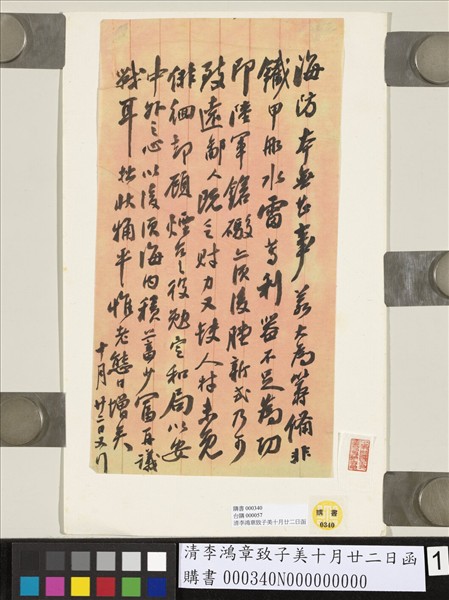 海防本無甚事若大為籌備非
鐵甲船水雷等利器不足為功
即陸軍鎗礮亦須後膛新式乃可
致遠鄙人既乏財力又缺人才未免
徘徊却顧煙台之役勉定和局以安
中外之心以後須海內積蓄少富再議
戰耳拙狀稍平惟老態日增矣
十月廿二日又頓
購書 000340
台購 000057
清李鴻章致子美十月廿二日函
購書
0340
清李鴻章致子美十月廿二日函
購書 000340N000000000
1